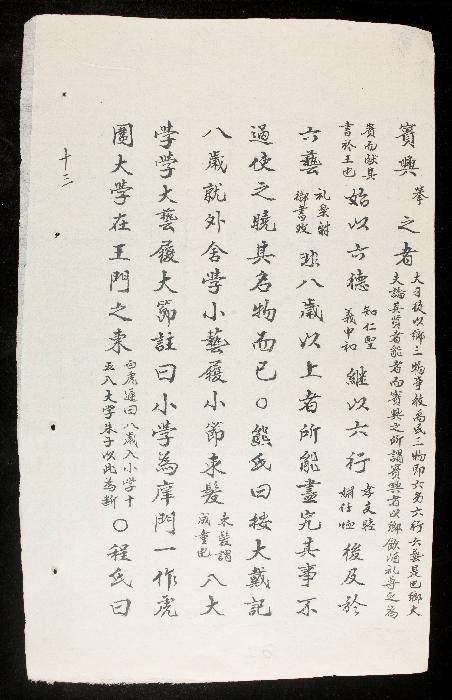 賓興 舉之者 大司徒以鄉三物等教萬民三物即六名六行六藝是也鄉大
夫論其賢者能者而賓興之所謂賓興者以鄉飲酒礼尊之為
賓而献其
書於王也 始以六德 知仁聖
義中和 継以六行 孝友睦
姻任恤 後及於
六藝 礼樂射
御書数 非八歲以上者所能盡究其事不
過使之曉其名物而已〇熊氏曰按大戴記
八歲就外舍学小藝履小節束髮 束髮謂
成童也 入大
學学大藝履大節註曰小学為庠門一作虎
闈大学在王門之東 白虎通曰八歲入小学十
五入大学朱子以此為斷 〇程氏曰
十三